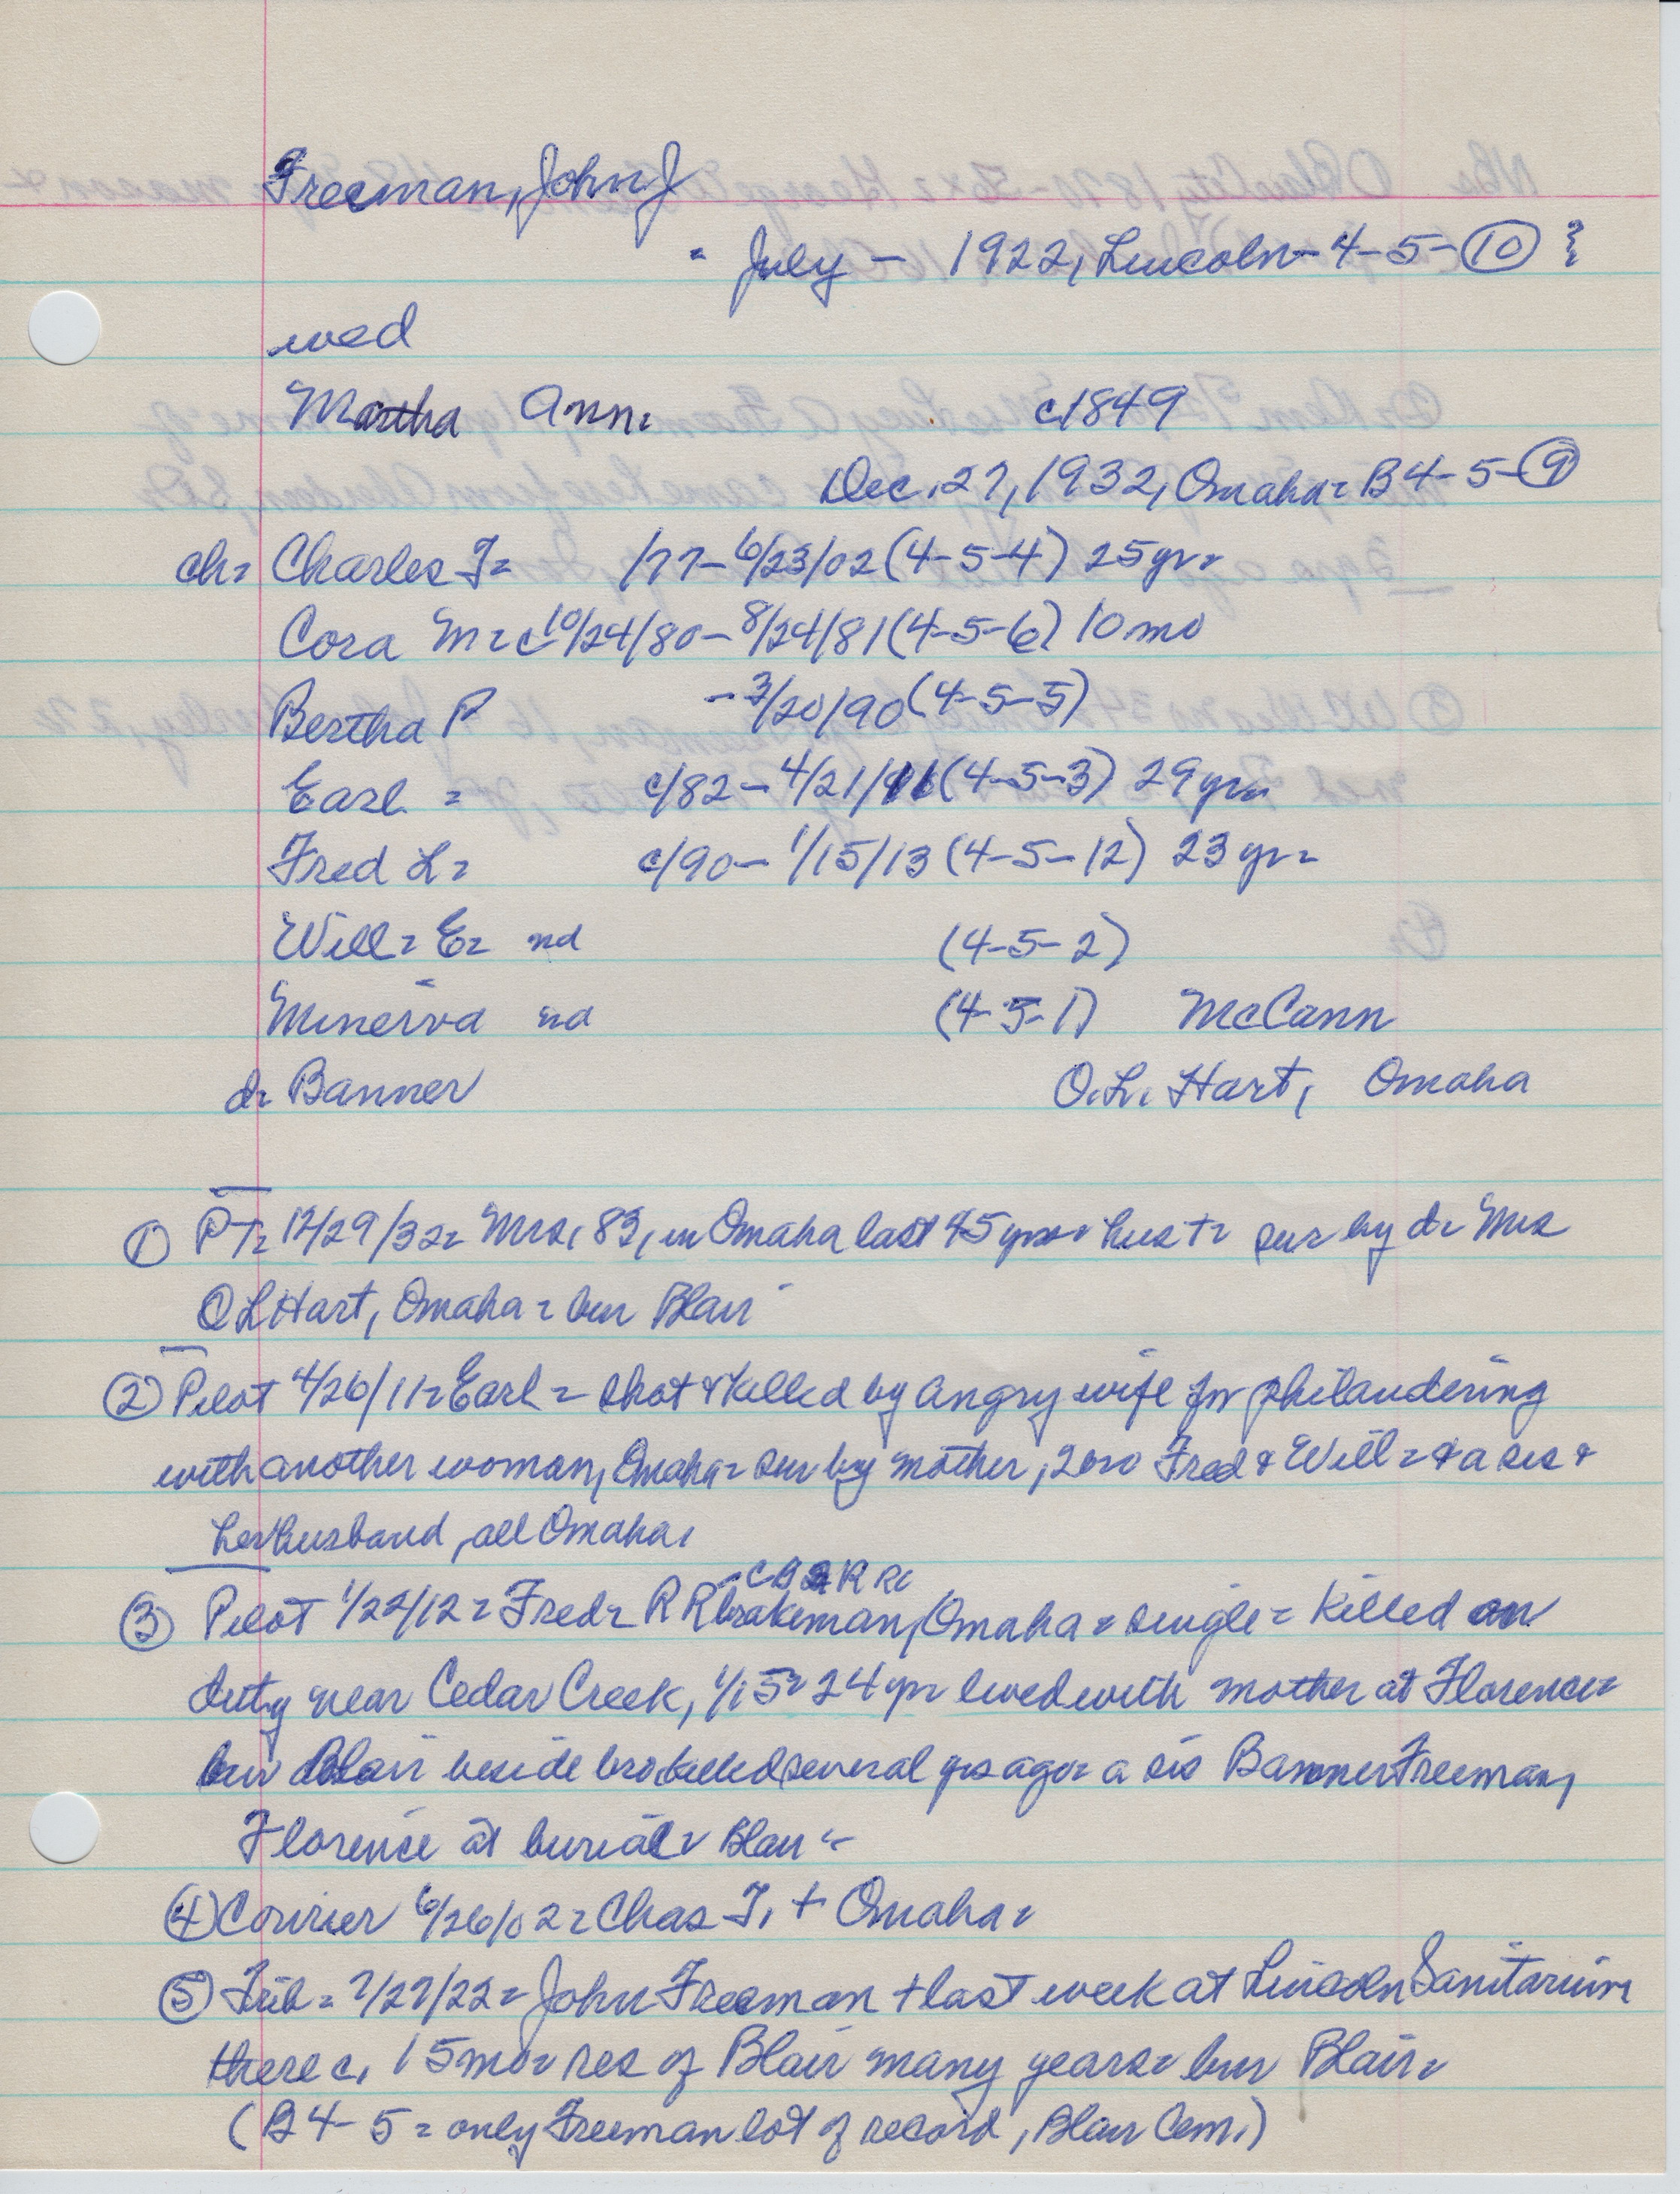 Freeman, John J
- July – 1922, Lincoln- 4-5-⑩ ?
wed
Martha Ann= c1849
Dec. 27, 1932, Omaha= B4-5-⑨
ch= Charles F= /77- 6/23/02 (4-5-4) 25yr=
Cora M= c10/24/80- 8/24/81 (4-5-6) 10 mo
Bertha P -3/20/90 (4-5-5)
Earl = c/82- 4/21/11 (4-5-3) 29yr=
Fred L= c/90- 1/15/13 (4-5-12) 23 yr=
Will= E= nd (4-5-2)
Minerva nd (4-5-1) McCann
d= Banner O.L. Hart, Omaha
① PT= 12/29/32= Mrs, 83, in Omaha last 45yrs= hus += sur by d= Mrs
O L Hart, Omaha= bur Blair
② Pilot 4/26/11= Earl= shot & killed by angry wife for philandering
with another woman, Omaha= sur by mother, 2 bro Fred & Will= & a sis &
her husband, all Omaha,
- C B & R RR
③ Pilot 1/22/12= Fred= R R brakeman, Omaha= single= Killed on
duty near Cedar Creek, 1/15= 24 yr= lived with mother at Florence=
bur Blair beside bro killed several yrs ago= a sis Banner Freeman,
Florence at burial= Blair=
④ Courier 6/26/02= Chas F, + Omaha=
⑤ Trib= 7/27/22= John Freeman + last week at Lincoln Sanitarium
there c, 15mo= res of Blair many years= bur Blair=
(B 4-5= only Freeman lot of record, Blair Cem.)